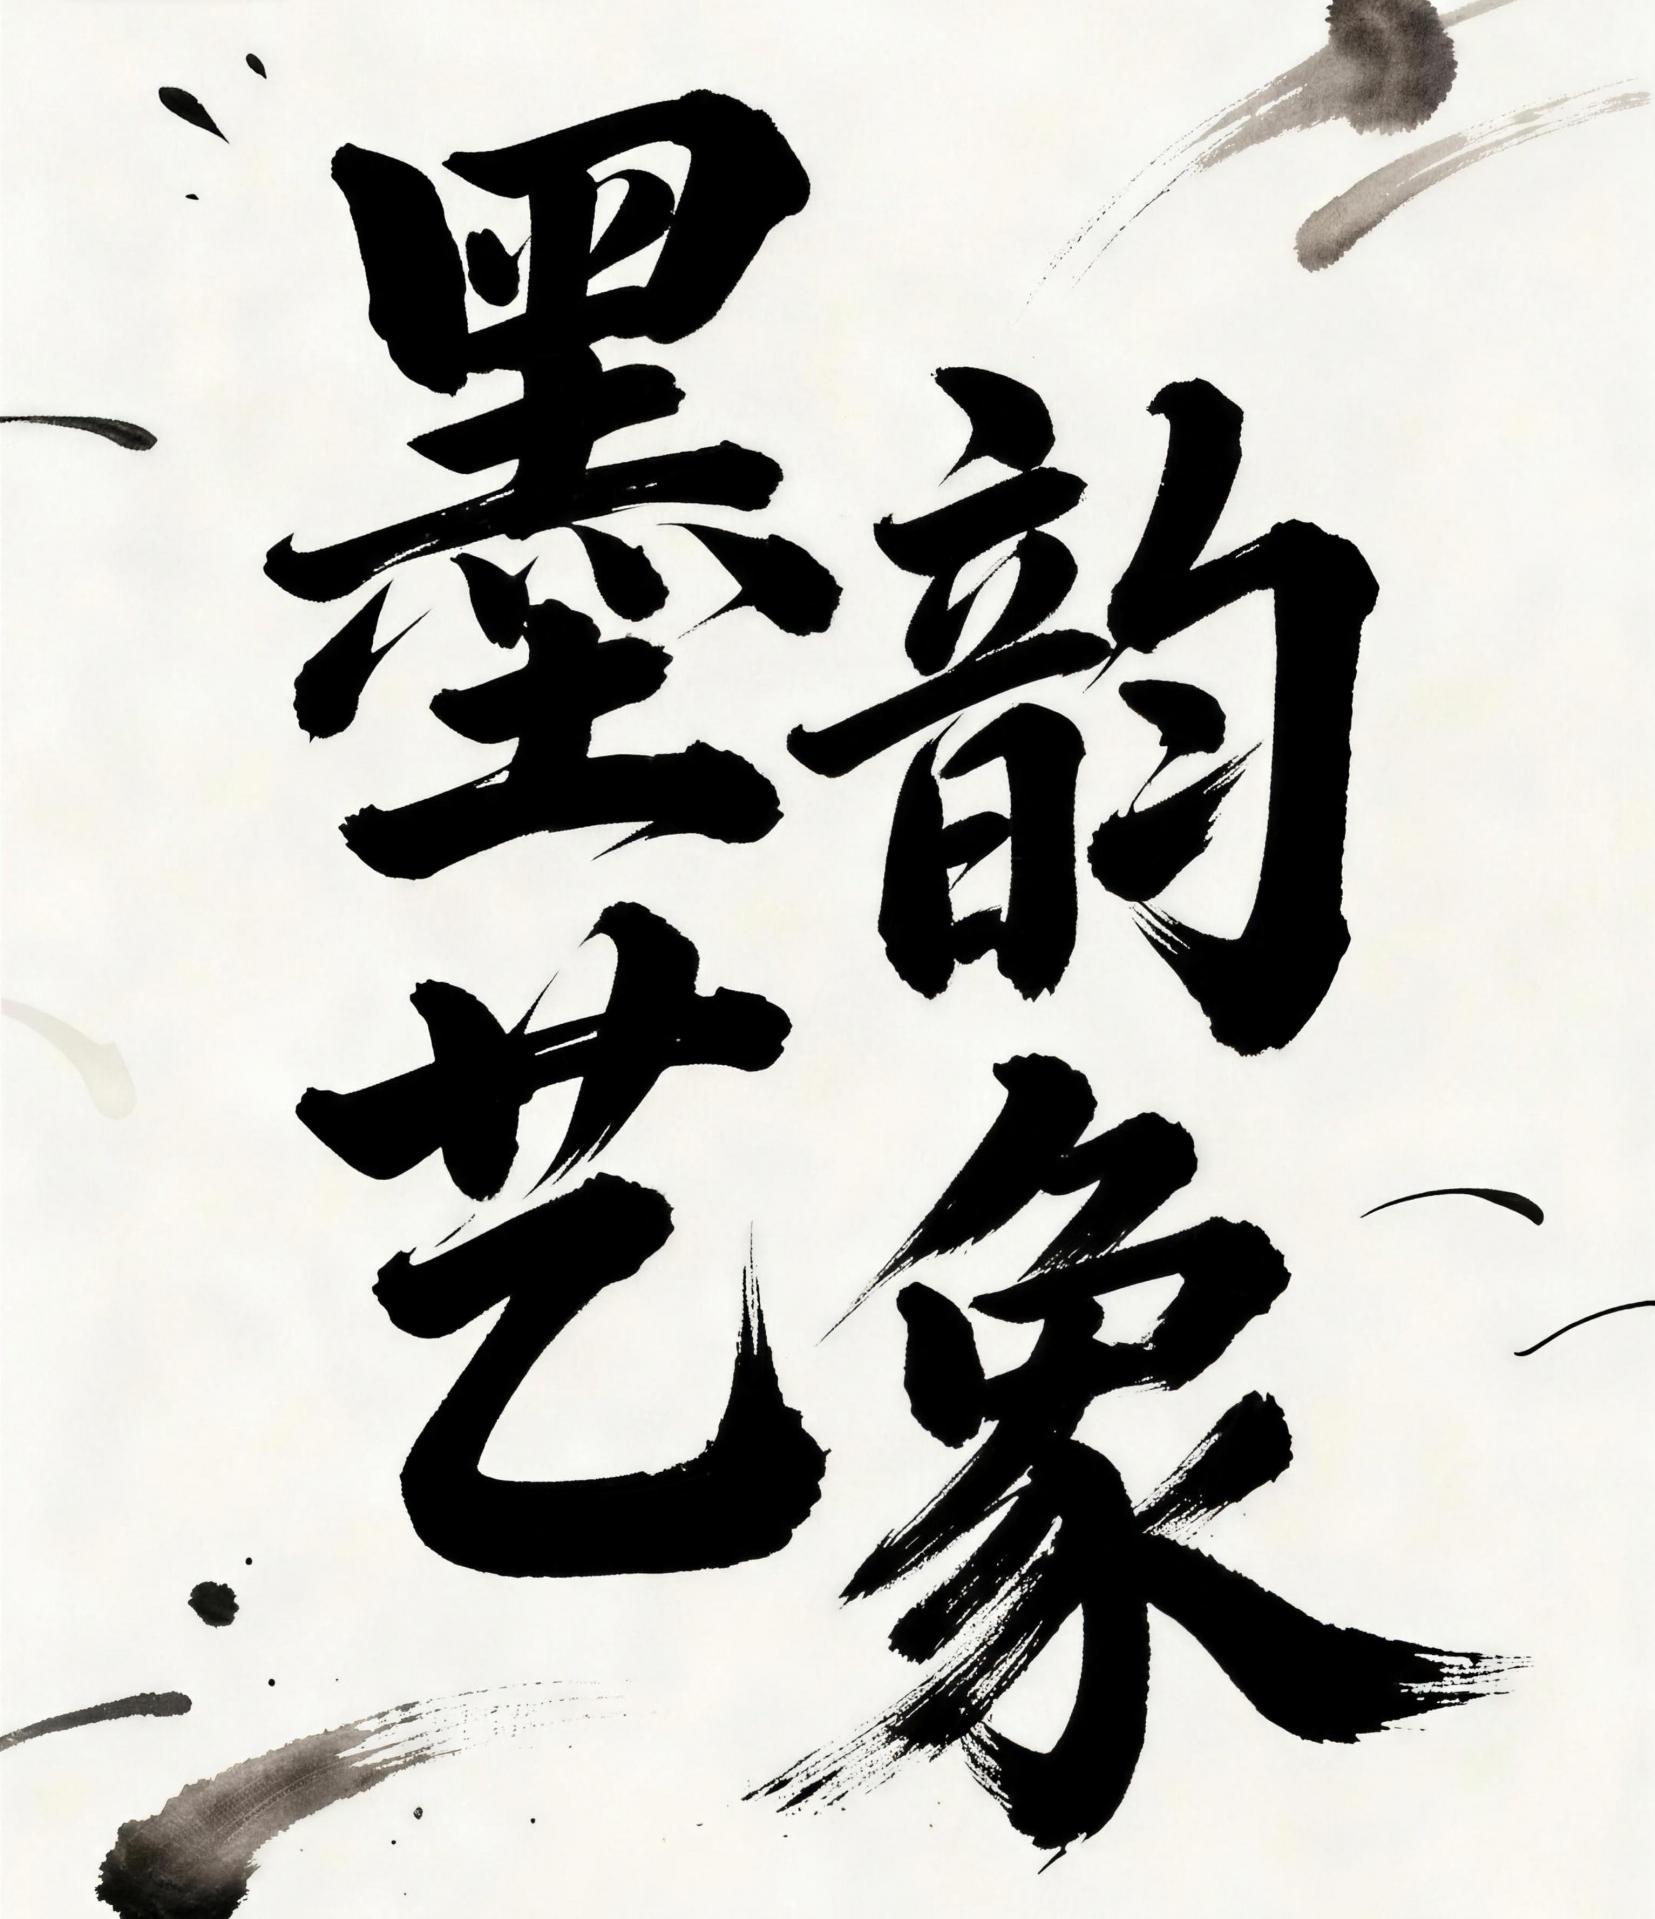 墨艺
韵象